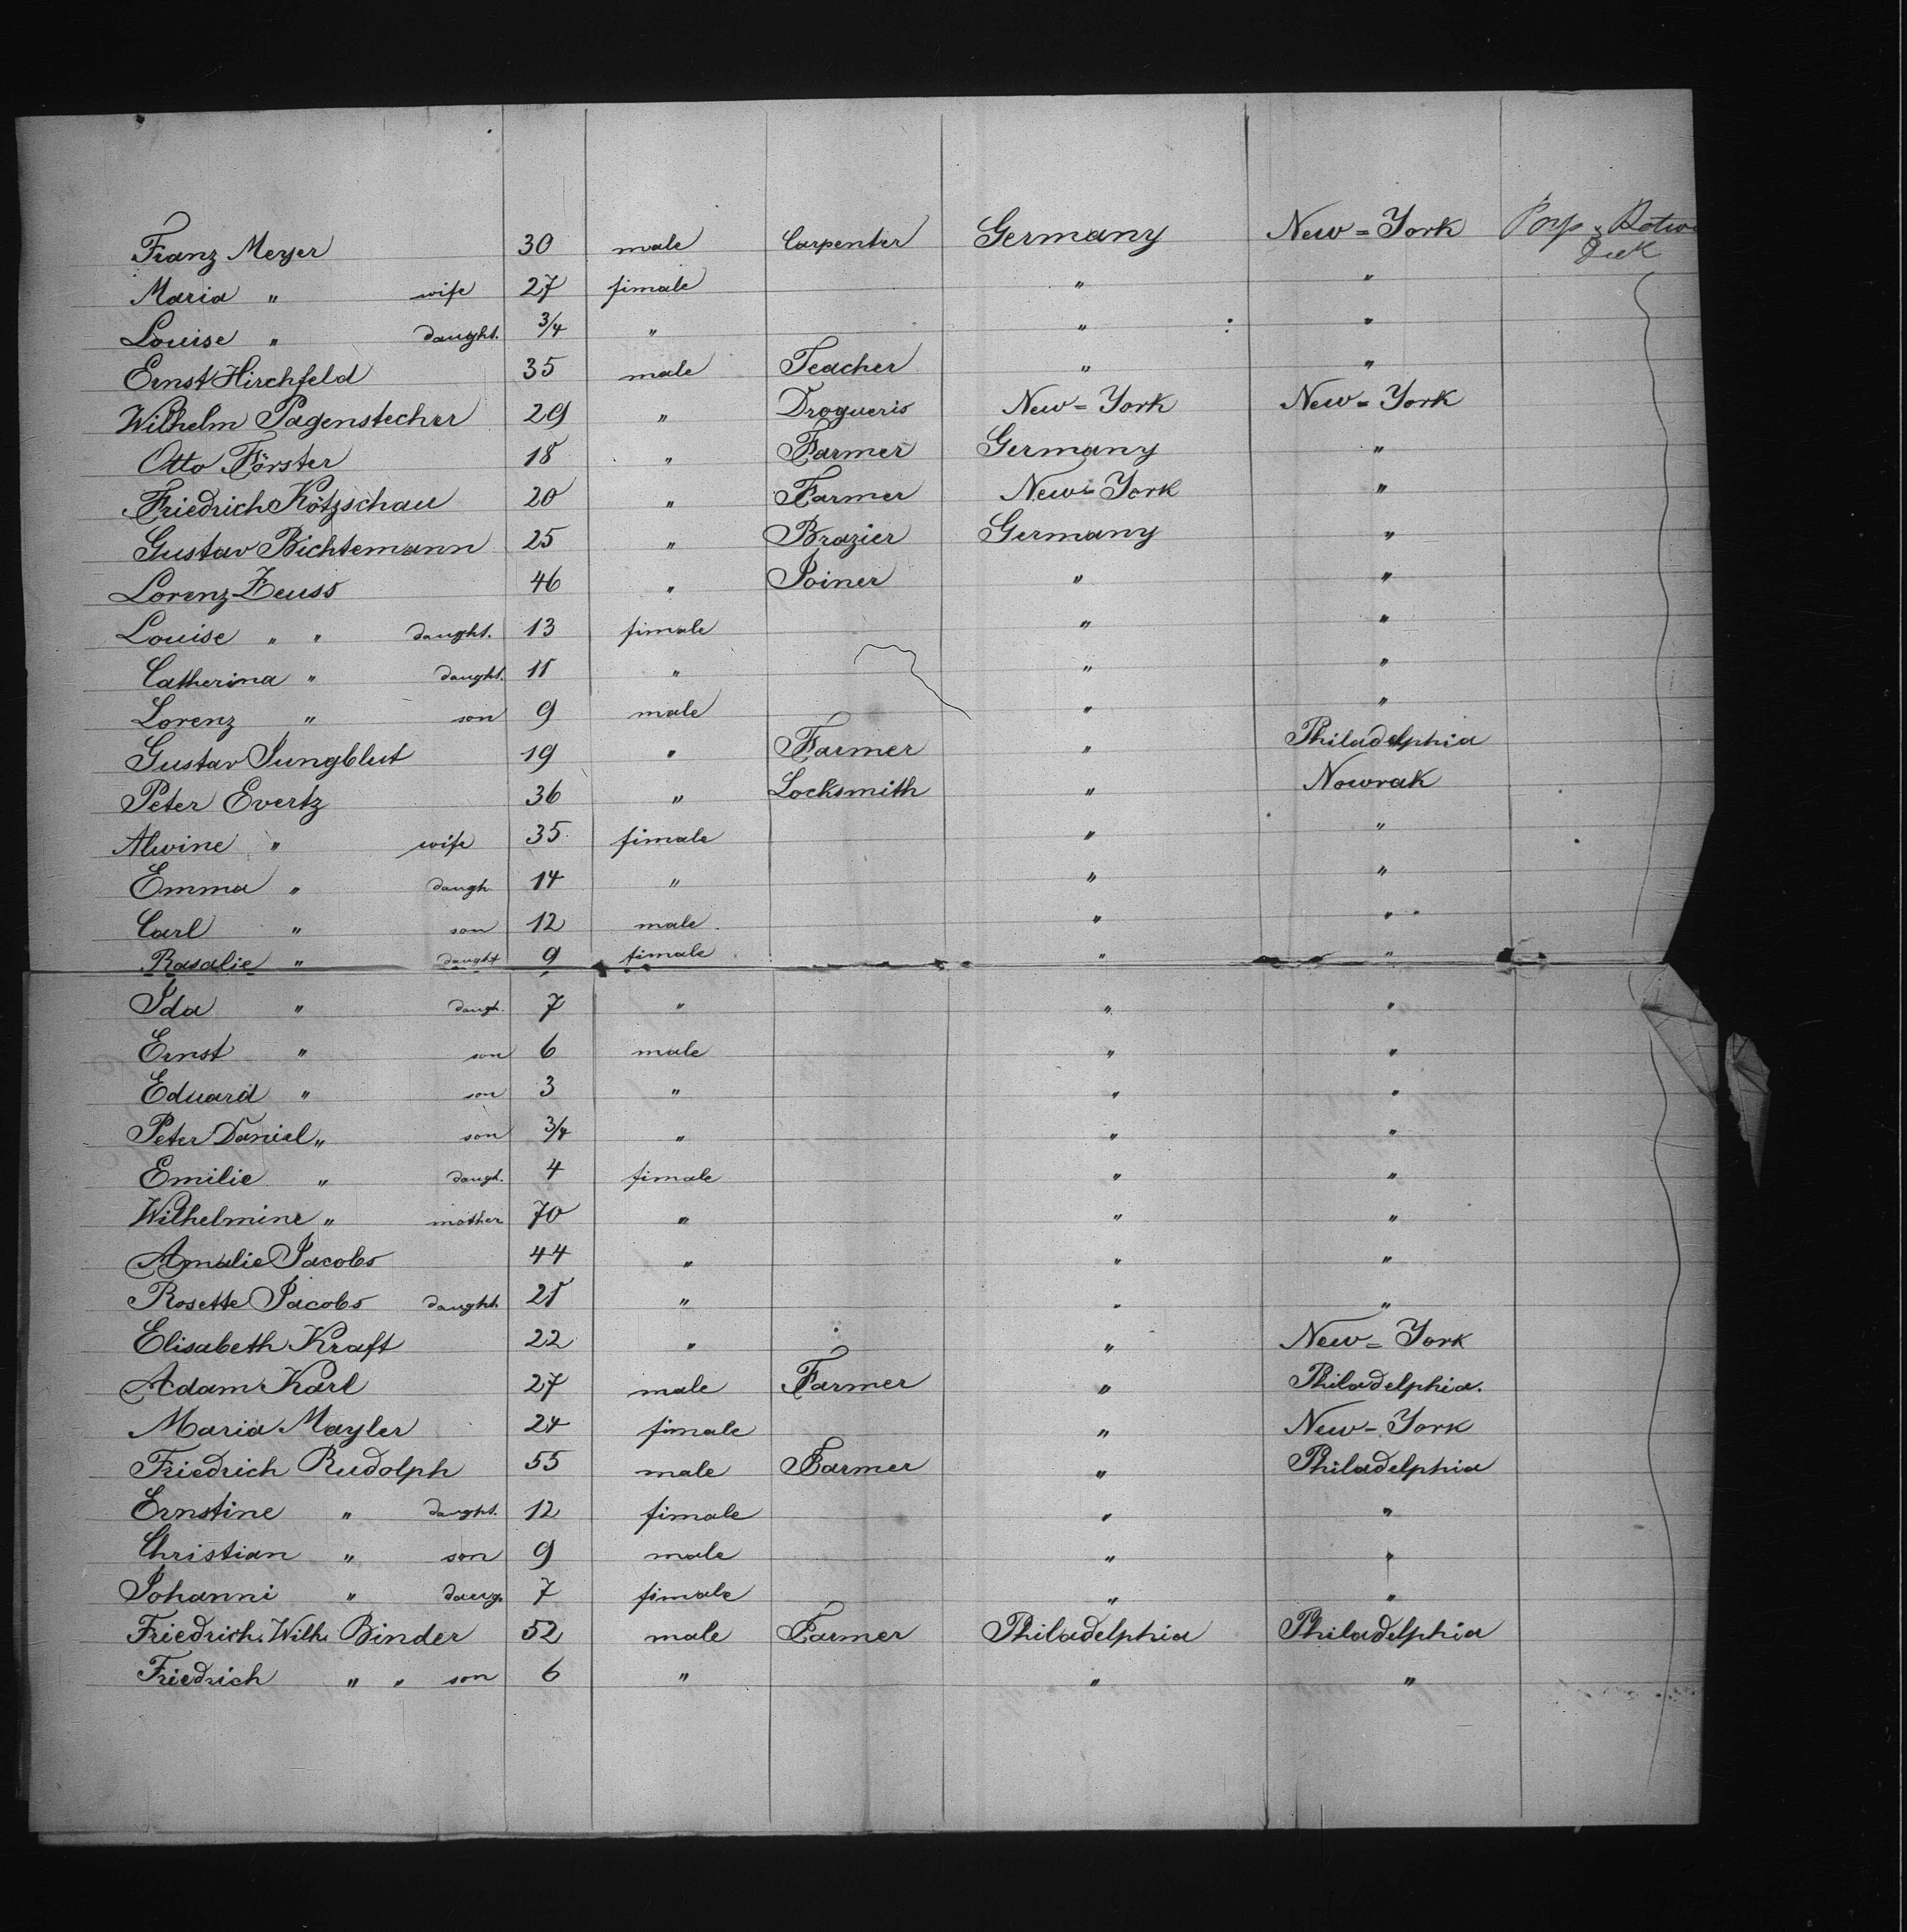 Franz Meyer 30 male Carpenter Germany New=York
Maria " wife 27 fimale " "
Louise " daught. 3/4 " " "
Ernst Hirchfeld 35 male Teacher " "
Wilhelm Pagenstecher 29 " Drogueris New=York New=York
Otto Förster 18 " Farmer Germany "
Friedrich Kötzschau 20 " Farmer New=York "
Gustav Bichtemann 25 " Brazier Germany "
Lorenz Zeuss 46 " Joiner " "
Louise " " daught. 13 fimale " "
Catherina " daught. 11 " " "
Lorenz " son 9 male " "
Gustav Jungblut 19 " Farmer " Philadelphia
Peter Evertz 36 " Locksmith " Nowrak
Alwine " wife 35 fimale " "
Emma " daugh. 14 " " "
Carl " son 12 male " "
Rasalie " daught 9 fimale " "
Ida " daugh. 7 " " "
Ernst " son 6 male " "
Eduard " son 3 " " "
Peter Daniel " son 3/4 " " "
Emilie " daugh. 4 fimale " "
Wilhelmine " mother 70 " " "
Amalie Jacobs 44 " " "
Rosette Jacobs daught. 21 " " "
Elisabeth Kraft 22 " " New=York
Adam Karl 27 male Farmer " Philadelphia.
Maria Mayler 24 fimale " New=York
Friedrich Rudolph 55 male Farmer " Philadelphia
Ernstine " daught. 12 fimale " "
Christian " son 9 male " "
Johanni " daug. 7 fimale " "
Friedrich. Wilh. Binder 52 male Farmer Philadelphia Philadelphia
Friedrich " " son 6 " " "